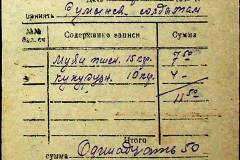 Румынск. солдатам
Содержание записи Сумма
Муки пшен. 15 гр. 7 50
кукурузн. 10 кр. 4 -
11 50
Итого
сумма Одинадцать 50